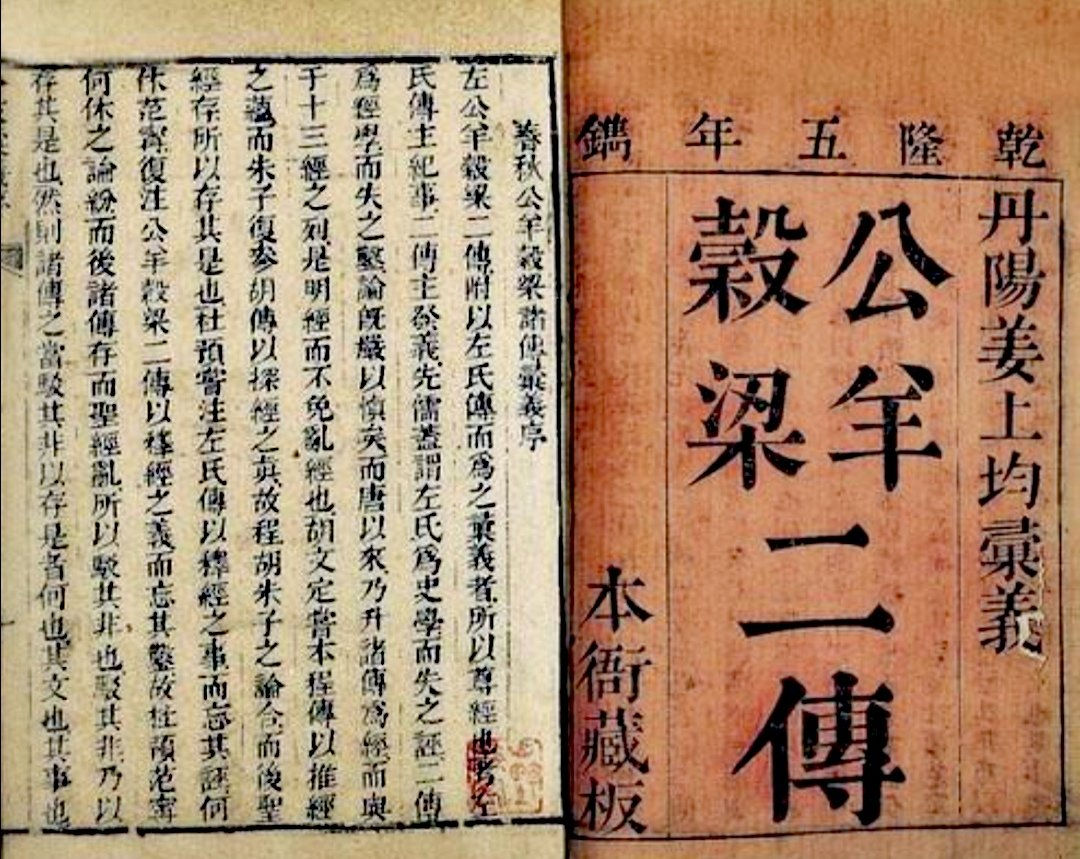 乾隆五年鐫
丹陽姜上均彙義
公羊
穀梁
二傳
本衙藏板
春秋公羊穀梁諸傳彙義序
左公羊穀梁二傳附以左氏傳而爲之彙義者所以尊經也考左
氏傳主紀事二傳主發義先儒蓋謂左氏爲史學而失之誣二傳
爲經學而失之鑿論旣嚴以愼矣而唐以來乃升諸傳爲經而與
于十三經之列是明經而不免亂經也胡文定嘗本程傳以推經
之蘊而朱子復參胡傳以探經之真故程胡朱子之論合而後聖
經存所以存其是也杜預嘗注左氏傳以釋經之事而忘其誣何
休范甯復注公羊穀梁二傳以釋經之義而忘其鑿故杜預范甯
何休之論紛而後諸傳存而聖經亂所以駁其非也駁其非乃以
存其是也然則諸傳之當駁其非以存是者何也其文也其事也